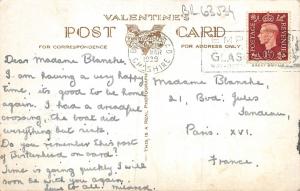 BR 63524
VALENTINE'S
POST CARD
FOR CORRESPONDENCE
FOR ADDRESS ONLY
CHESHIRE
1939
POSTAGE REVENUE
EMP
GLAS
THIS IS A REAL PHOTOGRAPH
Dear Madame Blanche,
I am having a very happy
time, its good to be home
again. I had a dreadful
crossing, the boat did
everything but sink.
Do you remember this part
of Birkenhead on card?
Time is going quickly I will
soon be with you again.
Love to all
Madame Blanche,
21, Bvd. Jules
Sandeau,
Paris. XVI.
France.